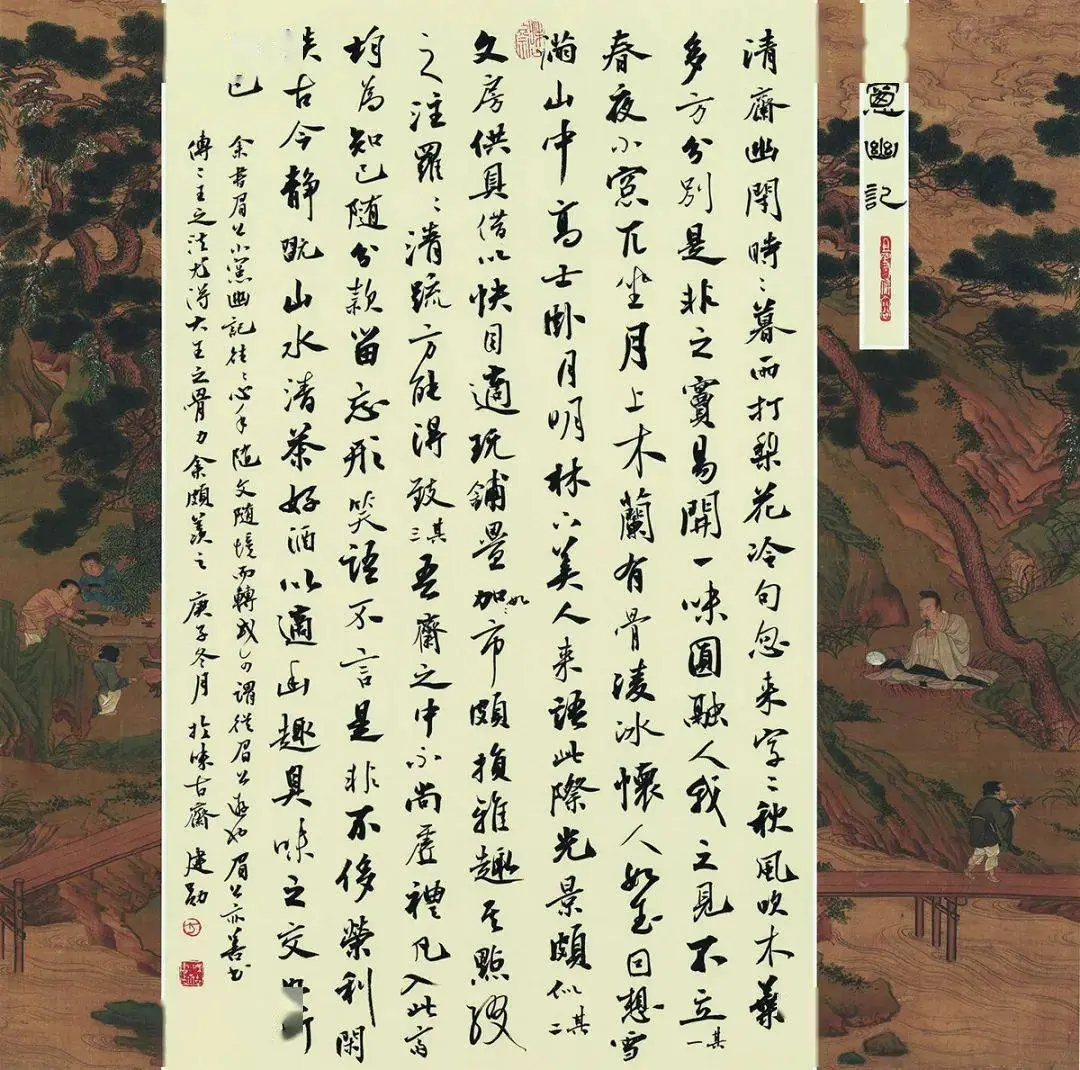 窻幽記
清齋幽閉時〻暮雨打梨花冷句忽来字〻秋風吹木葉
多方分別是非之竇易開一味圓融人我之見不立其一
春夜小窓兀坐月上木蘭有骨凌冰懷人如玉回想雪
滿山中高士卧月明林下美人来語此際光景頗似其二
文房供具借以快目適玩鋪疊加如市頗損雅趣其點綴
之注羅〻清疏方能得致其三吾齋之中不尚虛禮凡入此齋
均為知己随分款留忘形笑語不言是非不侈榮利閑
古今静玩山水清茶好酒以適幽趣臭味之交
已
余書眉公小窓幽記往〻心手随文随境而轉或可謂從眉公遊也眉公亦善書
傳二王之法尤得大王之骨力余頗羨之庚子冬月於味古齋建勛